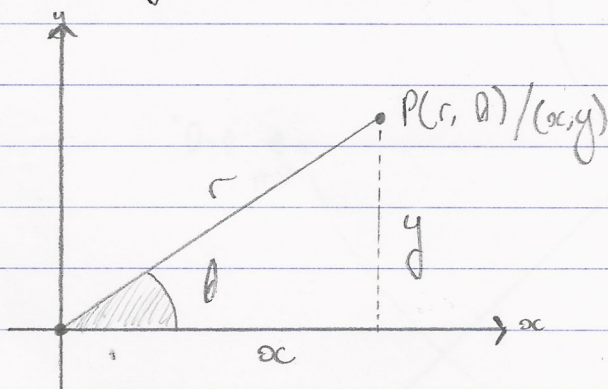 y
P(r, θ)/(x,y)
r
θ
y
x
x